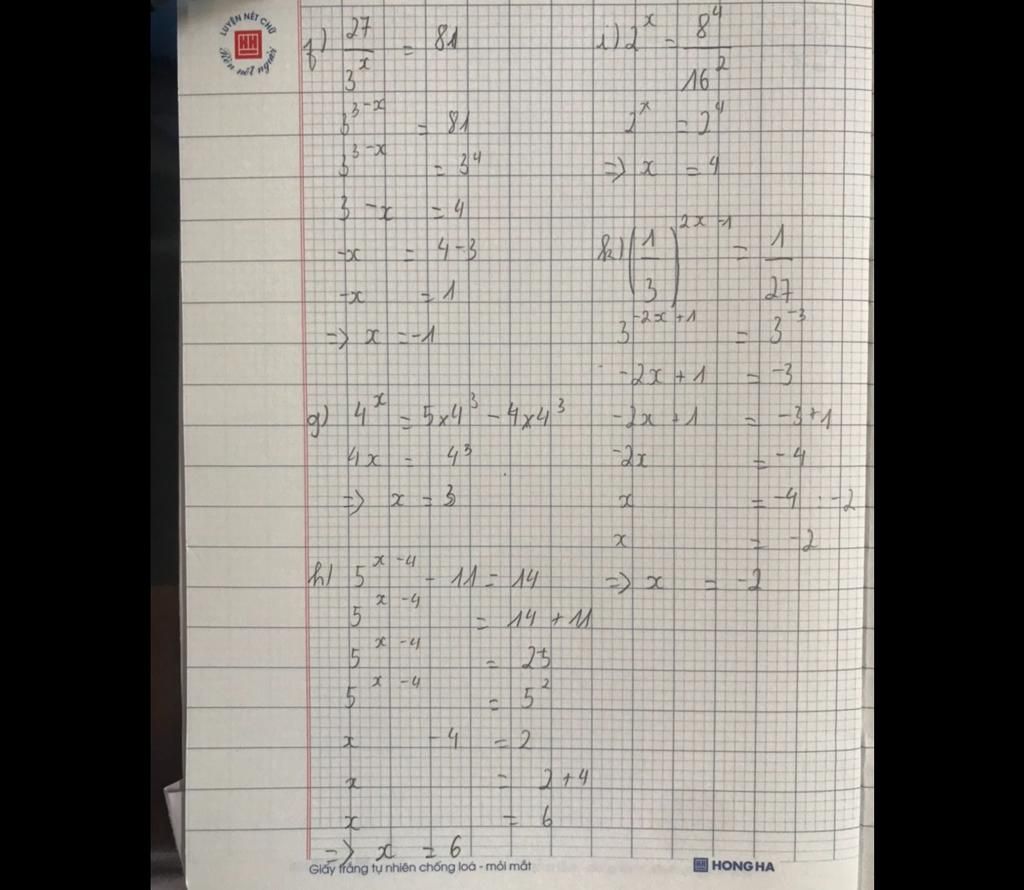 LUYỆN NÉT CHỮ
HH
Rèn nết người
f) 27/3^x = 81
3^(3-x) = 81
3^(3-x) = 3^4
3 - x = 4
-x = 4-3
-x = 1
=> x = -1
g) 4^x = 5x4^3 - 4x4^3
4x = 4^3
=> x = 3
h) 5^(x-4) - 11 = 14
5^(x-4) = 14 + 11
5^(x-4) = 25
5^(x-4) = 5^2
x - 4 = 2
x = 2+4
x = 6
=> x = 6
i) 2^x = 8^4/16^2
2^x = 2^4
=> x = 4
k) (1/3)^(2x-1) = 1/27
3^(-2x+1) = 3^-3
-2x + 1 = -3
-2x + 1 = -3+1
-2x = -4
x = -4 : -2
x = -2
=> x = -2
Giấy trắng tự nhiên chống loá - mỏi mắt
HH HONG HA